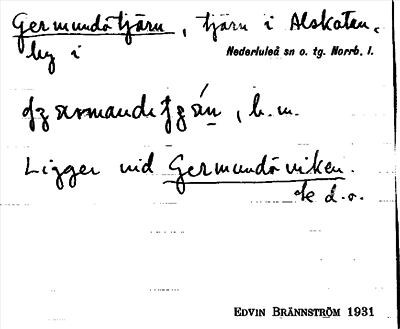 Germundötjärn, tjärn i Alskaten,
by i Nederluleå sn o. tg. Norrb. l.
, b. m.
Ligger vid Germundöviken.
d. o.
EDVIN BRÄNNSTRÖM 1931